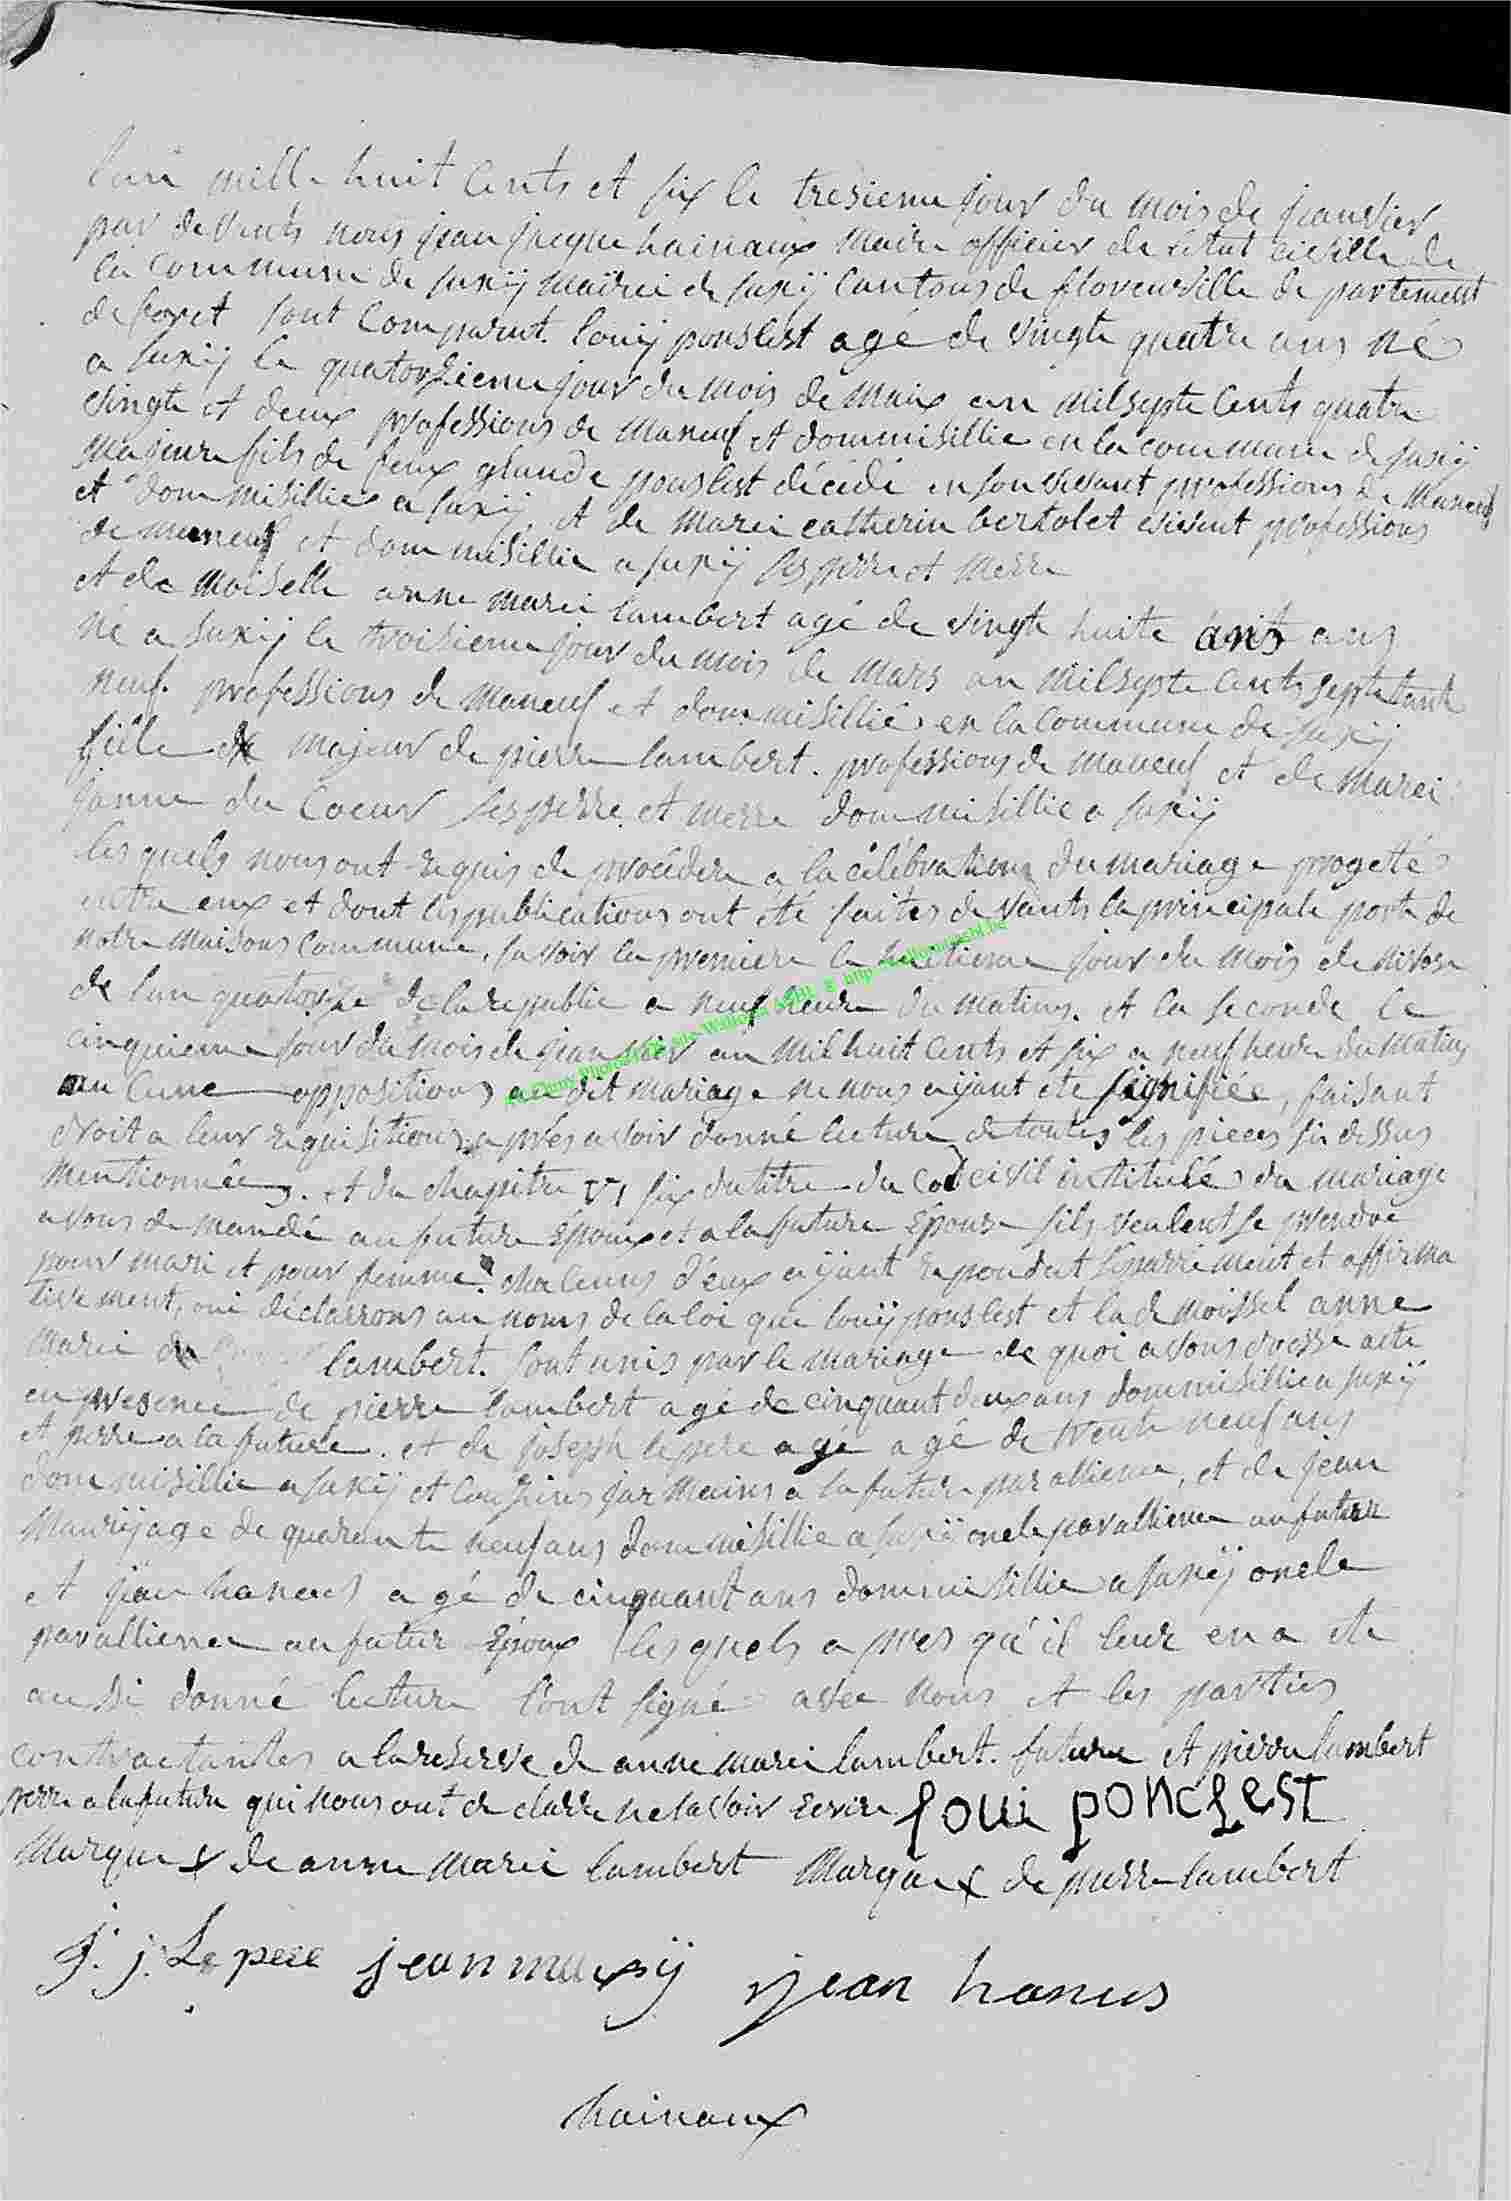 lan mille huit Cents et six le tresieme jour du mois de jeanvier
par devents nous jean jacque hainaux maire officier de l'état civille de
la Commune de suxij mairie de suxij Cantons de florenville departement
de foret sont Comparut. louij ponslest agé de vingte quatre ans né
a suxij le quatorzieme jour du mois de maix an milsepte Cents quatre
vingte et deux professions de maneuf et dommisillie en la commune de suxij
majeure fils de feux glaude ponslest décédé en son vivant professions de maneuf
et dommisillie a suxij, et de marie catherin bertolet vivent professions
de maneuf et dommisillie a suxij ses perre et merre
et de moiselle anne marie lambert agé de vingte huite ans
né a suxij le troisieme jour du mois de mars an milsepte Cents septetante
neuf. professions de maneuf et dommisillié en la Commune de suxij
fiële majeur de pierre lambert. professions de maneuf et de marei
janne du Coeur ses perre et merre dommisillie a suxij
lesquels nous ont requis de procéder a la célébrations du mariage progetté
entre eux et dont les publications ont été faites devants la principale porte de
notre maisons Commune, savoir la premiere le huitieme jour du mois de nivose
de lan quatorze de la republic a neuf heure du mating. et la seconde le
cinquieme jour du mois de jeanvier an mil huit Cents et six a neuf heure du mating
aucune oppositions audit mariage ne nous aijant été signifiée, faisant
droit a leur requisitions après avoir donné lecture de toutes les pieces si dessus
mentionnées. et du chapitre VI six du titre du Code civil institulé du mariage
avons demandé au future Epoux et a la future Epouse sils veulent se prendre
pour mari et pour femme. chacuns d'eux aijant repondut séparriment et affirma
tivement, oui déclarrons au noms de la loi que louij ponslest et la demoissel anne
marie lambert. sont unis par le mariage de quoi avons dresse acte
en presence de pierre lambert agé de cinquant deux ans dommisillie a suxij
et perre a la future. et de joseph lepere agé agé de trente neuf ans
dommisillie a suxij et Couzins jarmains a la future par allience, et de jean
mauxij age de quarente neuf ans dommisillie a suxij oncle parallience au future
et jean hanus agé de cinquant ans dommisillie a suxij oncle
parallience au futur Epoux lesquels apres qu'il leur en a ete
aussi donné lecture l'ont signé avec nous et les parties
contractantes a la reserve de anne marei lambert. future et pierre lambert
perre a la future qui nous ont declarre ne savoir ecrire loui poncLest
Marque x de anne marie lambert Marque x de pierre lambert
j. j. Le pere jean mauxij jean hanus
hainaux